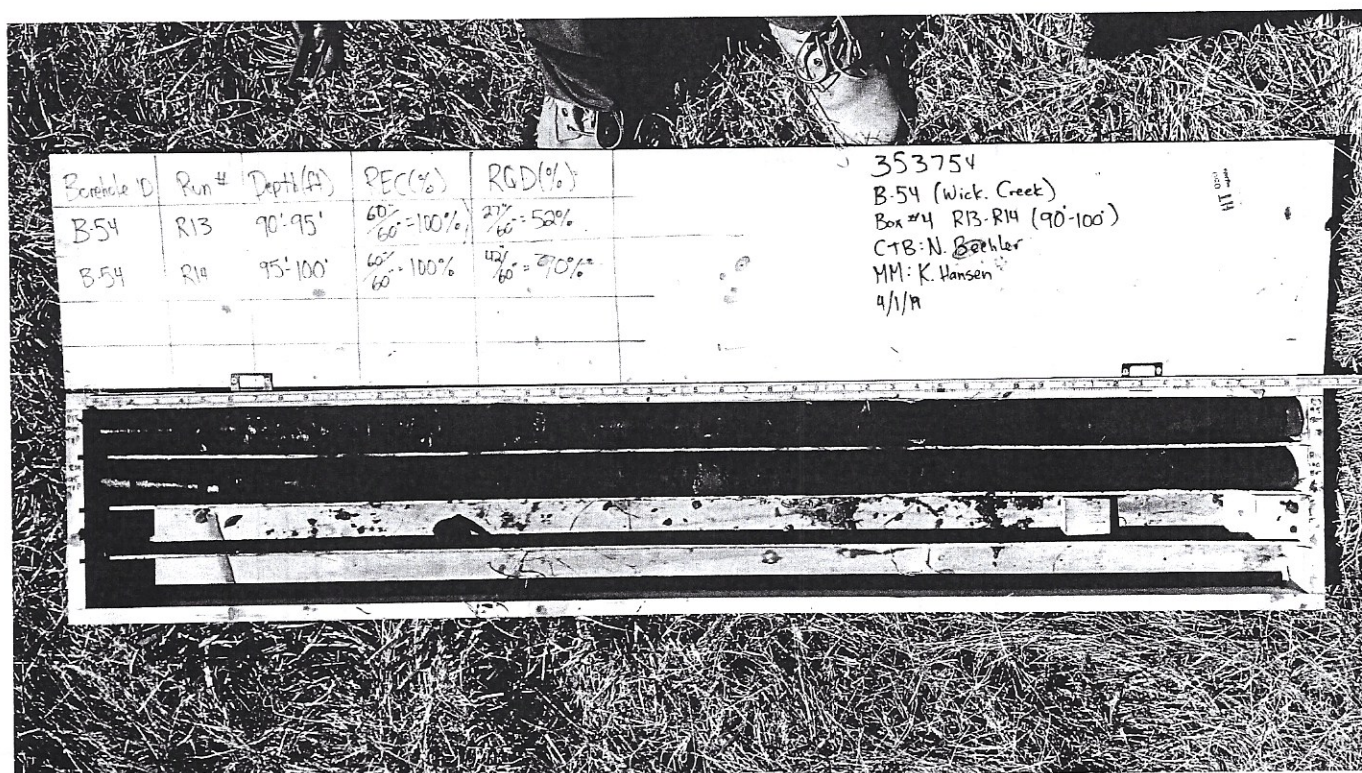 Borehole ID Run # Depth(ft) REC(%) RQD(%)
B-54 R13 90'-95' 60"/60" = 100% /60" = 52%
B-54 R14 95'-100' 60"/60" = 100% 42"/60" = 70%
353754
B-54 (Wick. Creek)
Box #4 R13-R14 (90'-100')
CTB: N. Baehler
MM: K. Hansen
4/1/19